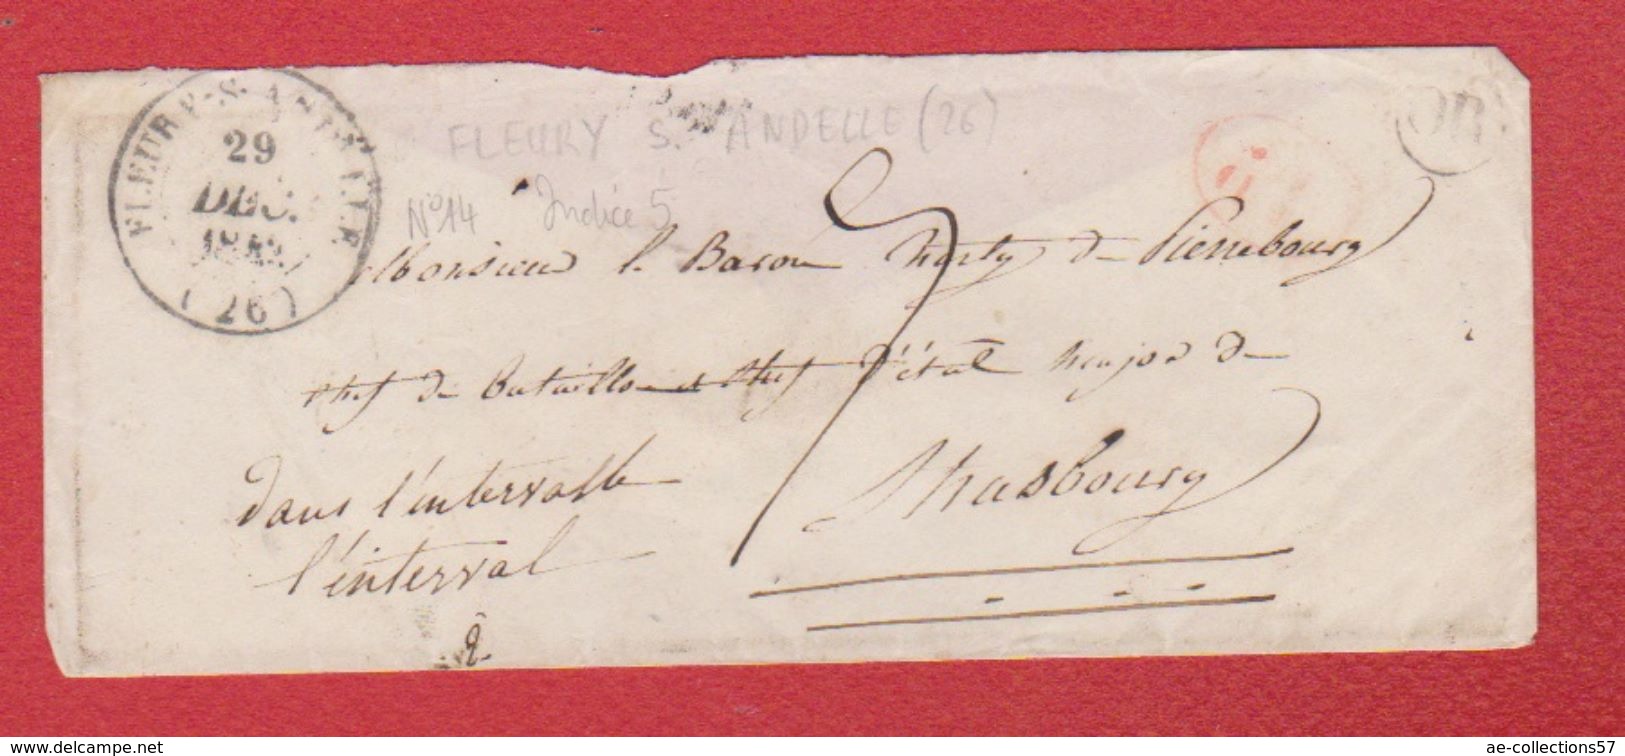 FLEURY-S-ANDELLE
29
DEC.
(26)
OR
FLEURY S. ANDELLE (26)
N°14 Indice 5
7
Monsieur le Baron Harty de Pierrebourg
chef de bataillon et chef d'état major de
Strasbourg
dans l'intervalle
l'interval
2.
ae-collections57